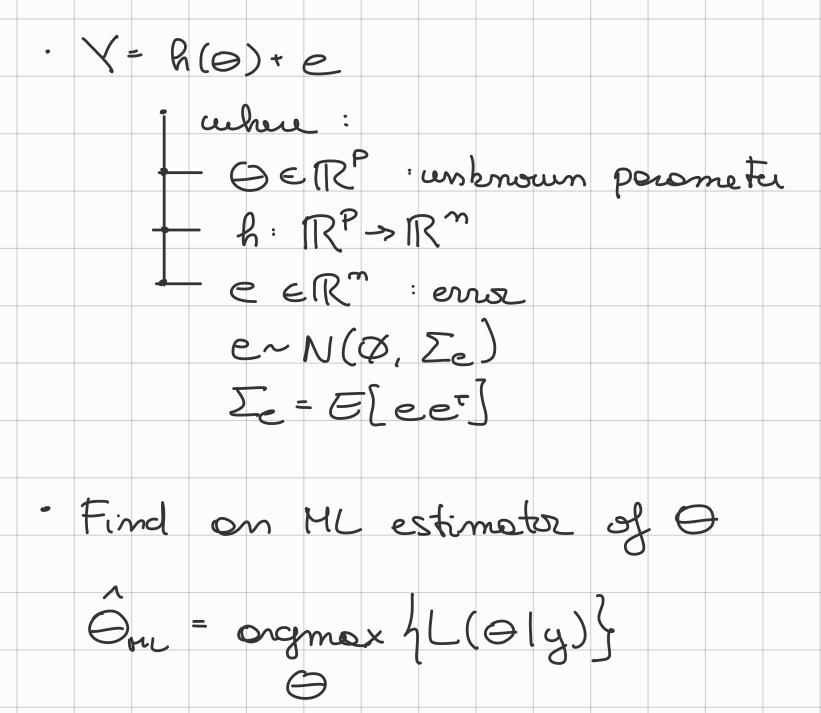 · Y = h(θ) + e
where :
θ ∈ ℝᵖ : unknown parameter
h : ℝᵖ → ℝⁿ
e ∈ ℝⁿ : error
e ~ N(∅, Σₑ)
Σₑ = E[eeᵀ]
· Find an ML estimator of θ
θ̂_ML = argmax {L(θ|y)}
θ